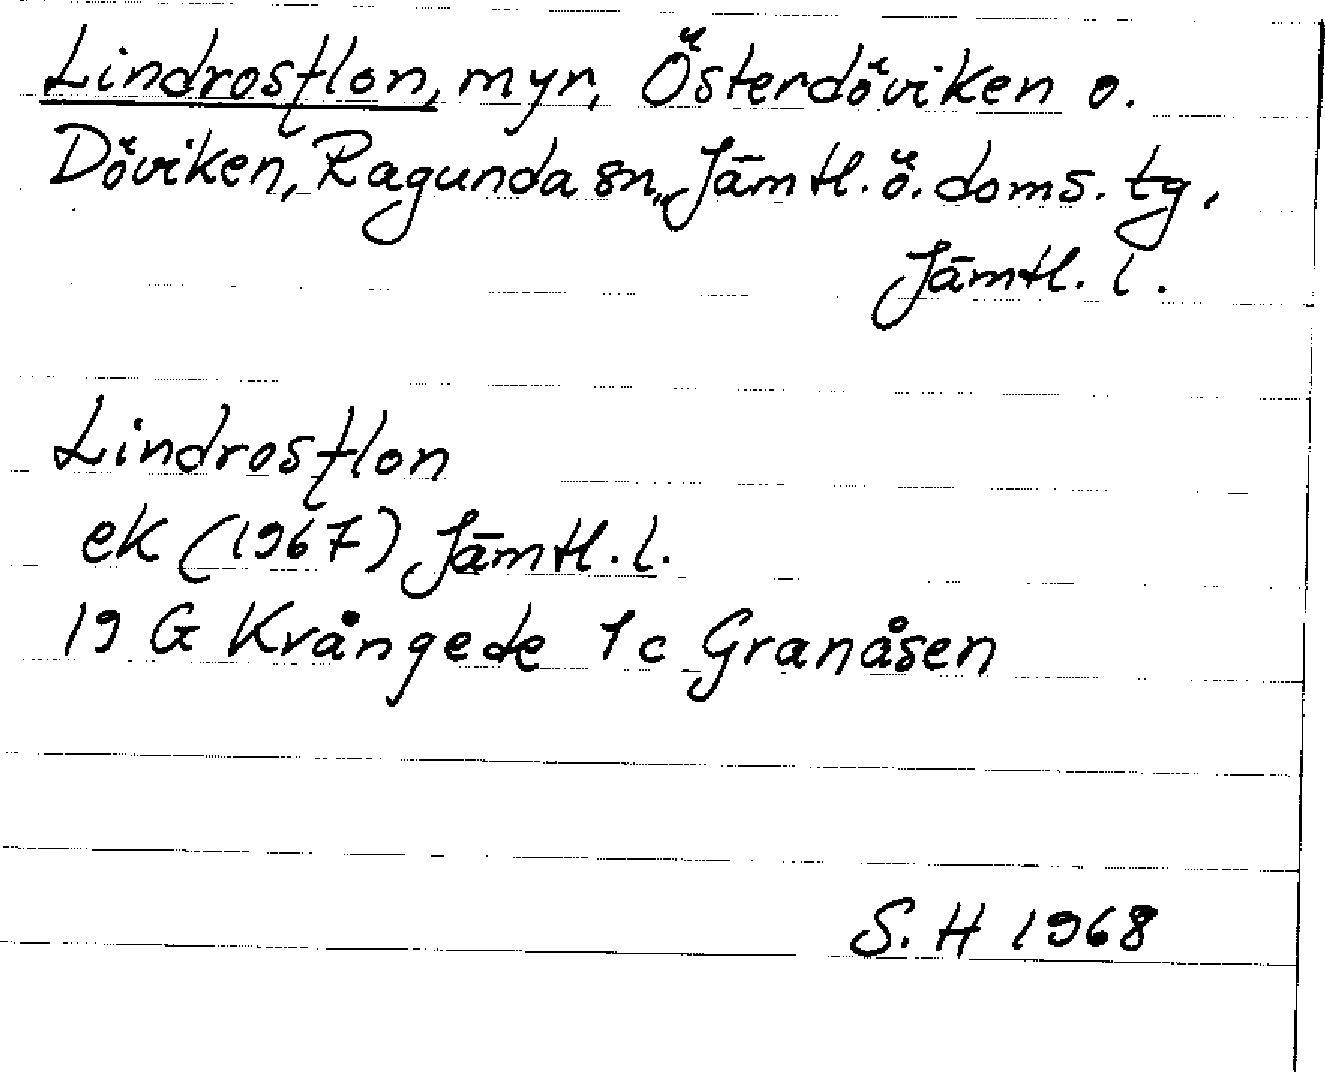 Lindrosflon, myr, Österdöviken o.
Döviken, Ragunda sn, Jämtl. ö. doms. tg,
Jämtl. l.
Lindrosflon
ek (1967) Jämtl. l.
19 G Krångede 1 c Granåsen
S. H 1968